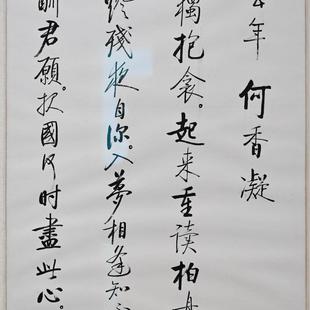 年 何香凝
獨抱衾。起来重读柏舟
燈殘夜自深。入夢相逢知不
酬君願。报國何时盡此心。